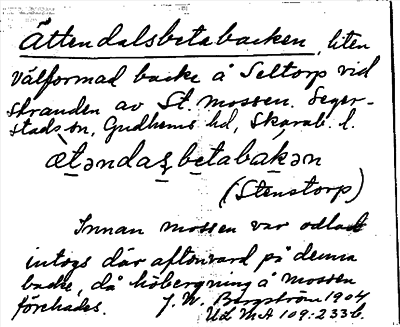 Ättendalsbetabacken, liten
välformad backe å Seltorp vid
stranden av St. mossen. Seger-
stads sn, Gudhems hd, Skarab. l.
ætəndasbetabakən
(Stenstorp)
Innan mossen var odlad
intogs där aftonvard på denna
backe, då höbergning å mossen
förehades. J. W. Bergström 1904
Ud MA 109:233b.